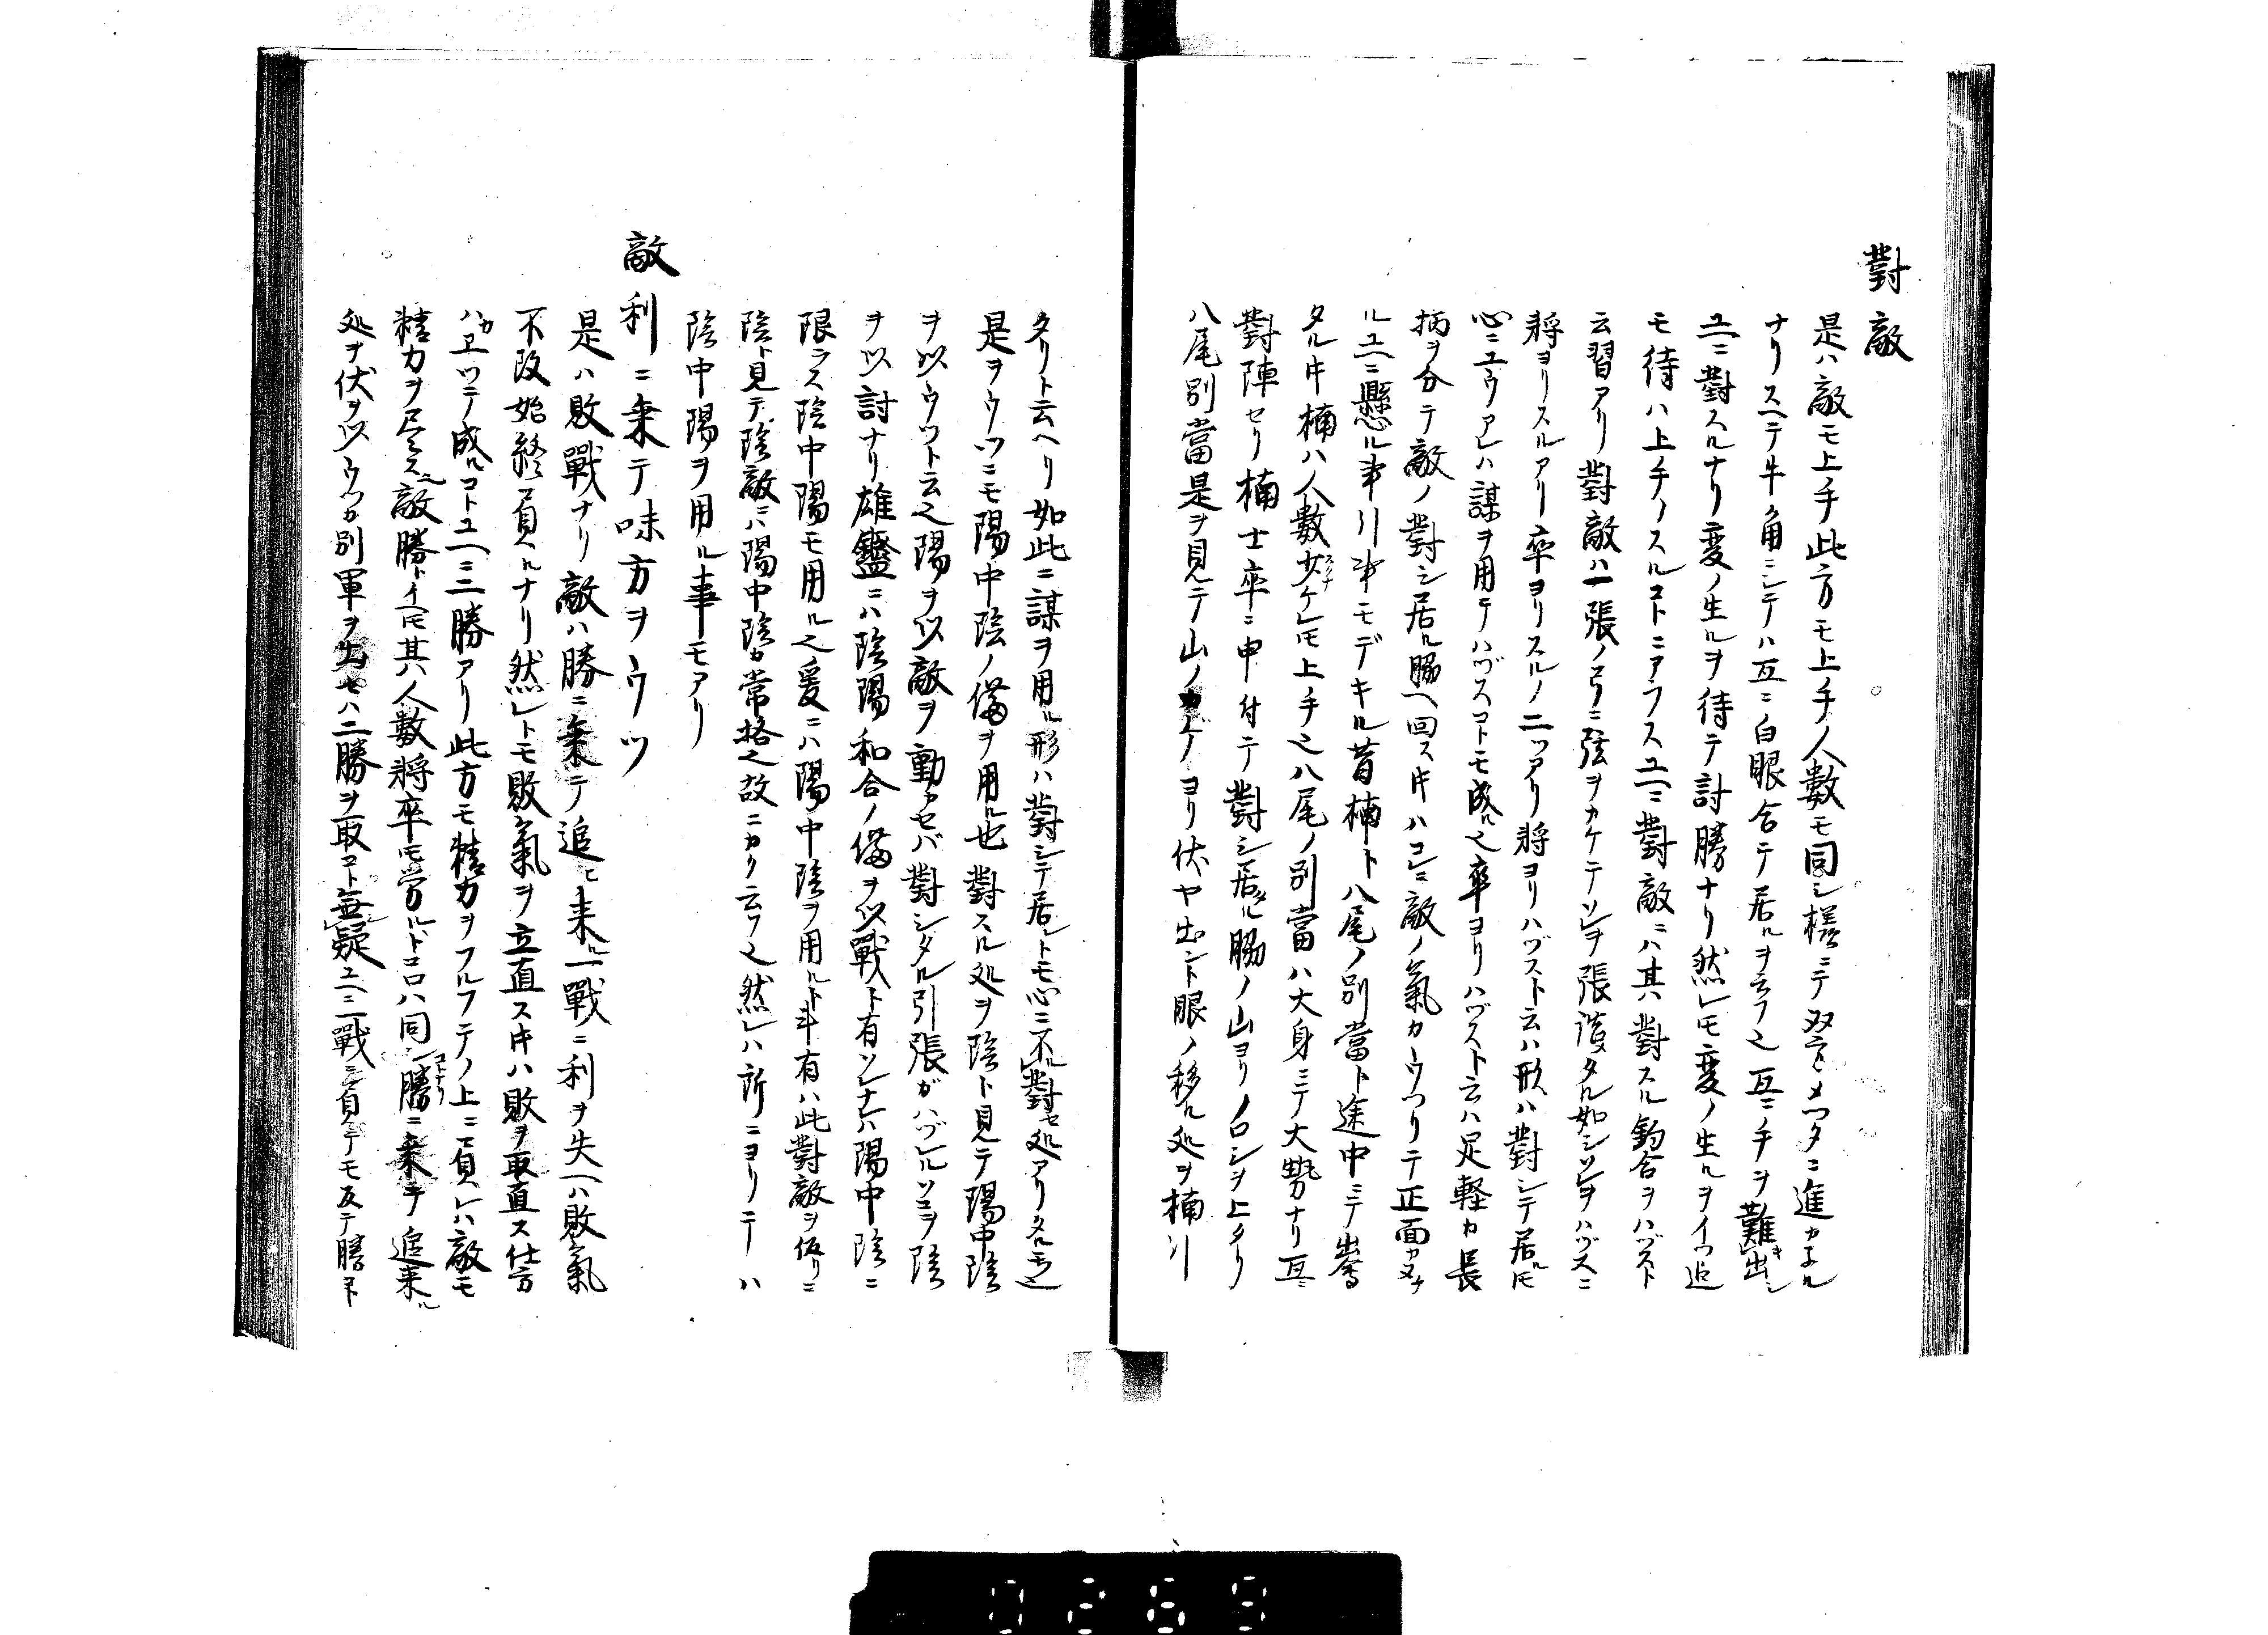 對敵
是ハ敵モ上手此方モ上手ノ人數モ同シ様ニテ双方メツタニ進カタル
ナリスヘテ牛角ニシテハ互ニ白眼合テ居ルヲ云フ也互ニ手ヲ難出シ
ユヘニ對スルナリ変ノ生ルヲ待テ討勝ナリ然レモ変ノ生ルヲイツ迠
モ待ハ上手ノスルコトニアラスユヘニ對敵ニハ其ハ對スル釣合ヲハヅスト
云習アリ對敵ハ一張ノ弓ニ弦ヲカケテソレヲ張詰タル如シソレヲハヅスニ
将ヨリスルアリ卒ヨリスルノ二ツアリ将ヨリハヅスト云ハ形ハ對シテ居ルモ
心ニユウアレハ謀ヲ用テハヅスコトモ成ル也卒ヨリハヅスト云ハ足軽カ長
柄ヲ分テ敵ノ對シ居ル脇ヘ回ス片ハコレニ敵ノ氣カウツリテ正面カヌケ
ルユヘニ懸ル事引事モデキル昔楠ト八尾ノ別當ト途中ニテ出會
タル片楠ハ人數少ケレモ上手也八尾ノ別當ハ大身ニテ大勢ナリ互ニ
對陣セリ楠士卒ニ申付テ對シ居ル脇ノ山ヨリノロシヲ上タリ
八尾別當是ヲ見テ山ノカゲヨリ伏ヤ出ント眼ノ移ル処ヲ楠引
タリト云ヘリ如此ニ謀ヲ用ル形ハ對シテ居ルトモ心ニ不對セ処アリタルモノ也
是ヲウツニモ陽中陰ノ備ヲ用ル也對スル処ヲ陰ト見テ陽中陰
ヲ以ウツト云也陽ヲ以敵ヲ動カセバ對シタル引張ガハヅルソコヲ陰
ヲ以討ナリ雄鑑ニハ陰陽和合ノ備ヲ以戰ト有ソレナハ陽中陰ニ
限ラス陰中陽モ用ル也爰ニハ陽中陰ヲ用ルト斗有ハ此對敵ヲ仮リニ
陰ト見テ陰敵ニハ陽中陰カ常格也故ニカク云フ也然レハ所ニヨリテハ
陰中陽ヲ用ル事モアリ
敵利ニ乗テ味方ヲウツ
是ハ敗戰ナリ敵ハ勝ニ乗テ追ヒ来ル一戰ニ利ヲ失ヘハ敗氣
不改始終負ヘルナリ然レトモ敗氣ヲ立直ス片ハ敗ヲ取直ス仕方
ハカヱツテ成ルコトユヘニ二勝アリ此方モ精力ヲフルフテノ上ニ負レハ敵モ
精力ヲ尽ス敵勝トイヘモ其ハ人數将卒モ労ルヽトコロハ同コトナリ勝ニ乗テ追来ル
処ヲ伏ヲ以ウツカ別軍ヲ出セハ二勝ヲ取コト無疑ユヘニ一戰ニ負テモ反テ勝コト